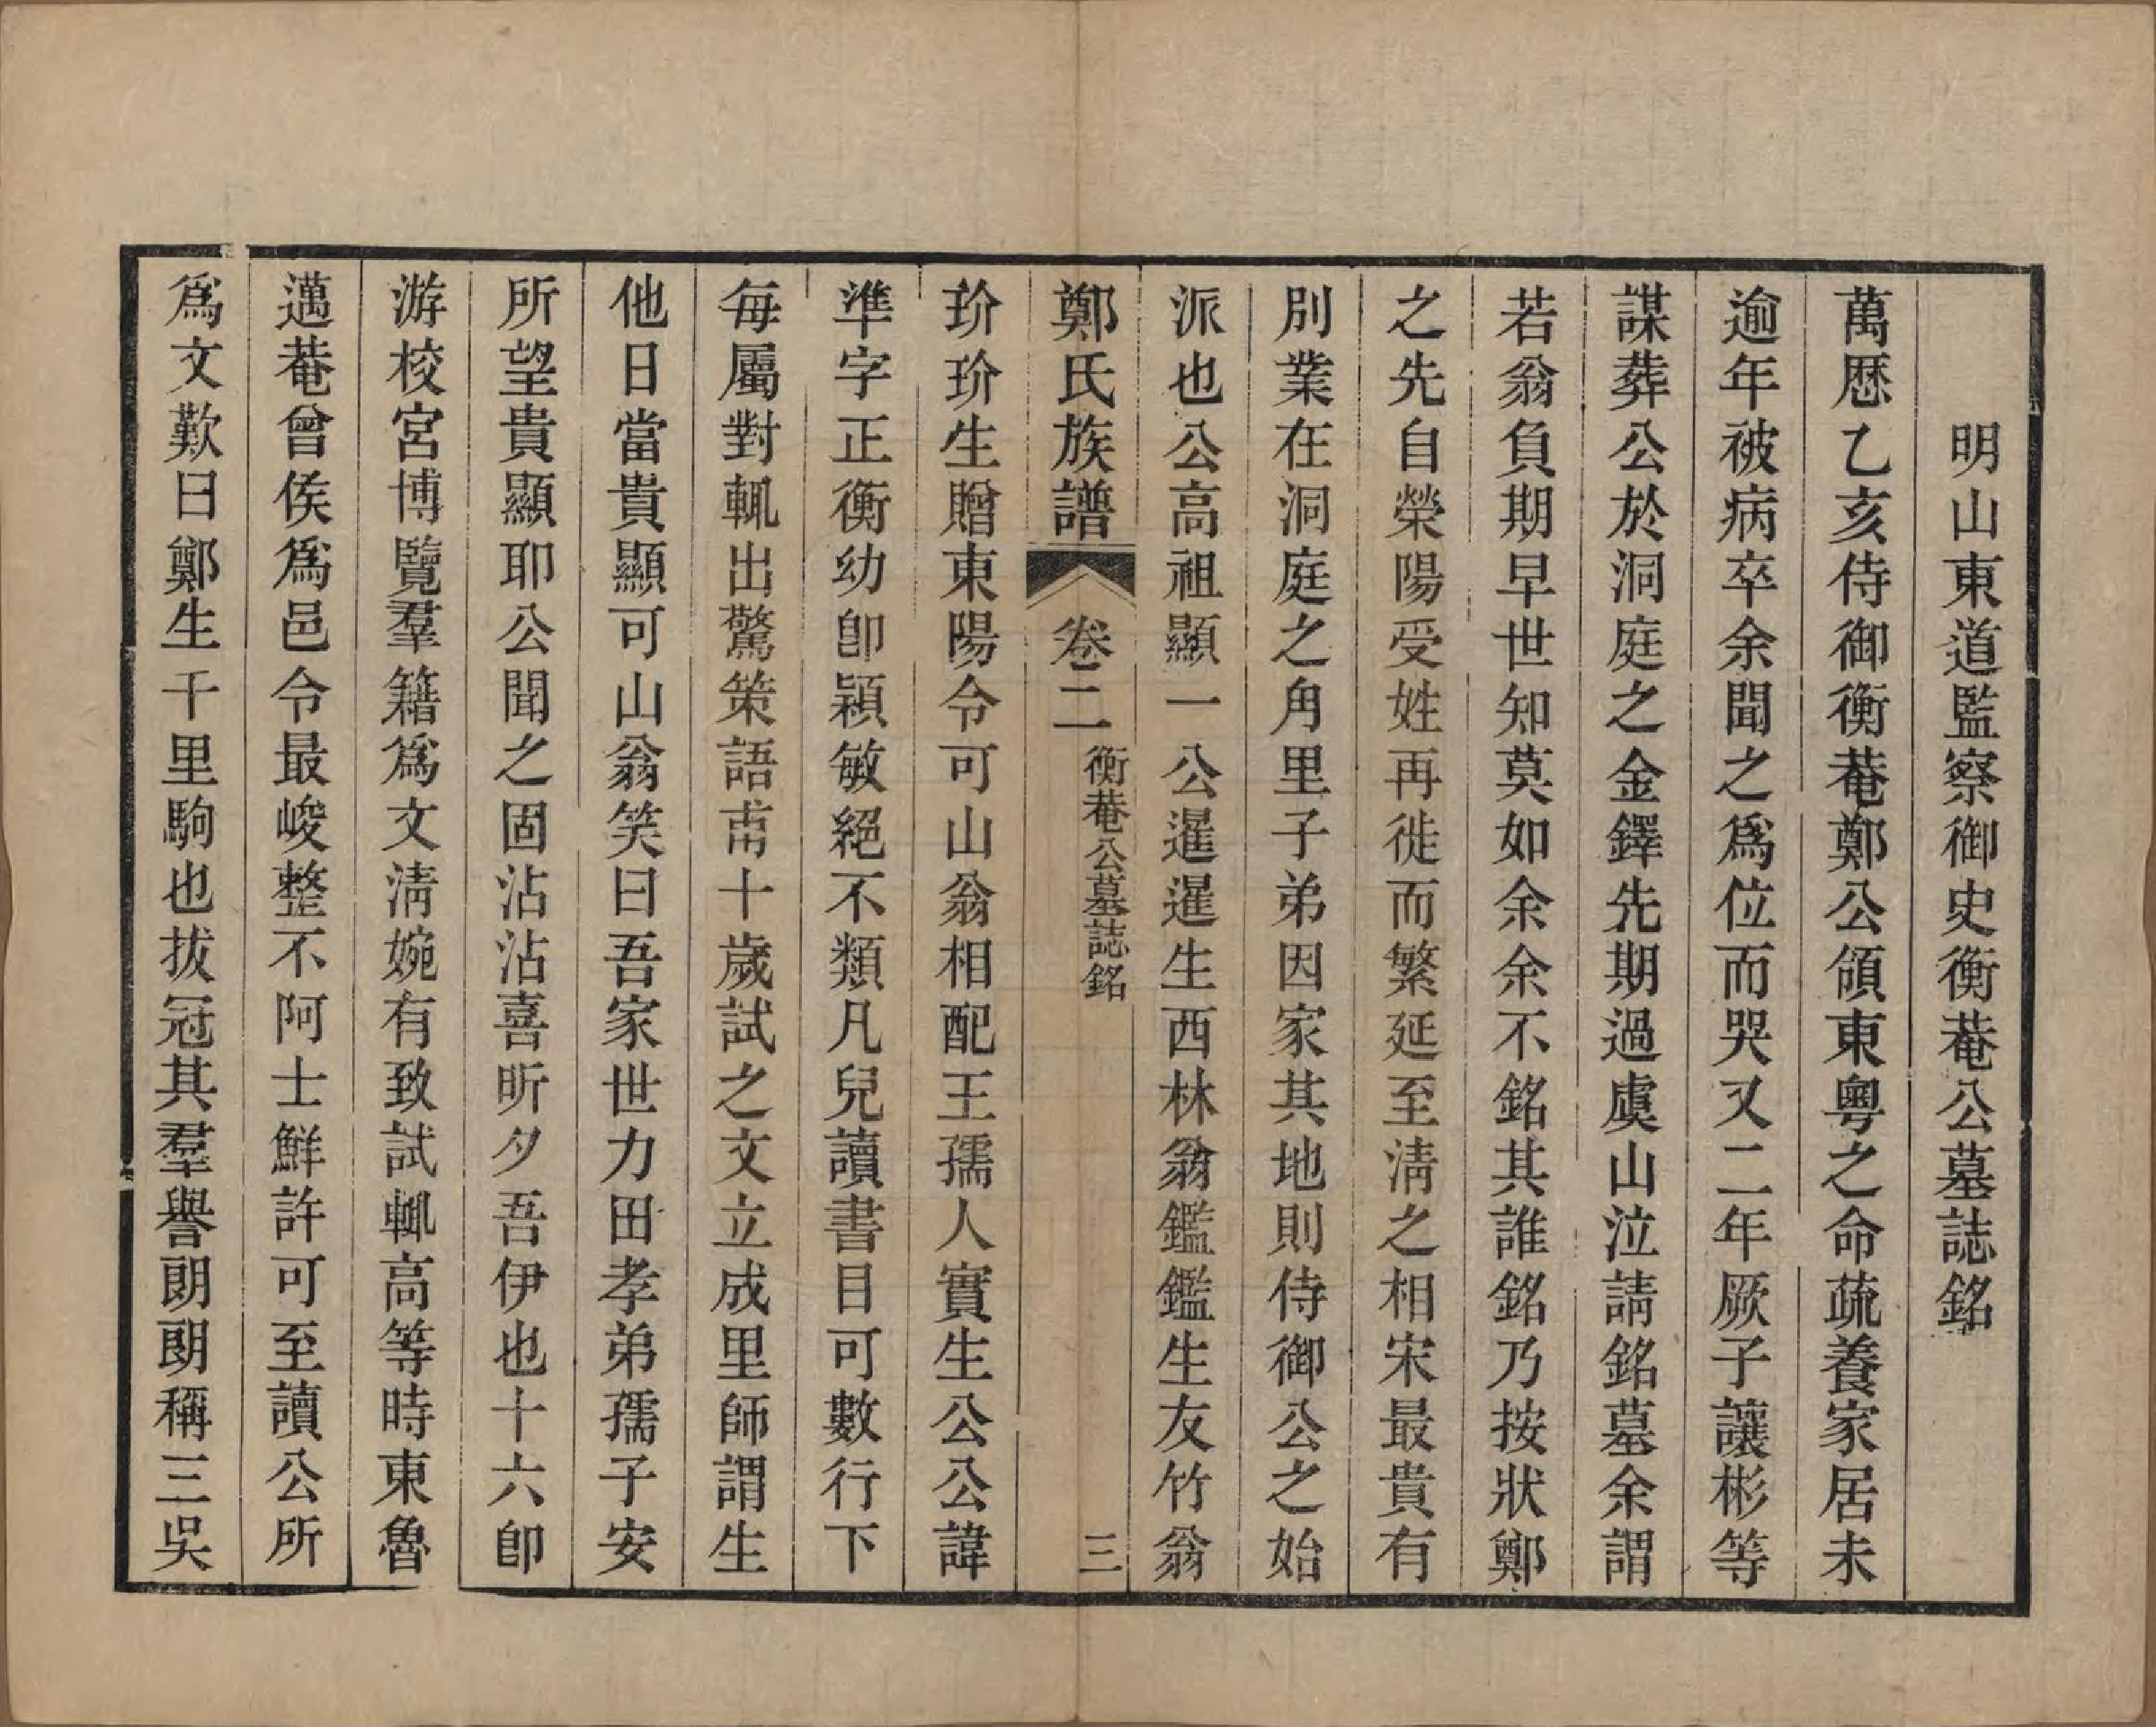 明山東道監察御史衡菴公墓誌銘
萬歷乙亥侍御衡菴鄭公領東粵之命疏養家居未
逾年被病卒余聞之爲位而哭又二年厥子讓彬等
謀葬公於洞庭之金鐸先期過虞山泣請銘墓余謂
若翁負期早世知莫如余余不銘其誰銘乃按狀鄭
之先自榮陽受姓再徙而繁延至淸之相宋最貴有
別業在洞庭之角里子弟因家其地則侍御公之始
派也公高祖顯一公暹暹生西林翁鑑鑑生友竹翁
鄭氏族譜 卷二 衡菴公墓誌銘 三
玠玠生贈東陽令可山翁相配王孺人實生公公諱
準字正衡幼卽穎敏絕不類凡兒讀書目可數行下
每屬對輒出驚策語甫十歲試之文立成里師謂生
他日當貴顯可山翁笑曰吾家世力田孝弟孺子安
所望貴顯耶公聞之固沾沾喜昕夕吾伊也十六卽
游校宮博覽羣籍爲文淸婉有致試輒高等時東魯
邁菴曾侯爲邑令最峻整不阿士鮮許可至讀公所
爲文歎曰鄭生千里駒也拔冠其羣譽朗朗稱三吳